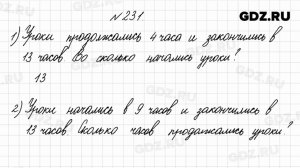 GDZ.RU
№ 231
1) Уроки продолжались 4 часа и закончились в
13 часов. Во сколько начались уроки?
13
2) Уроки начались в 9 часов и закончились в
13 часов. Сколько часов продолжались уроки?